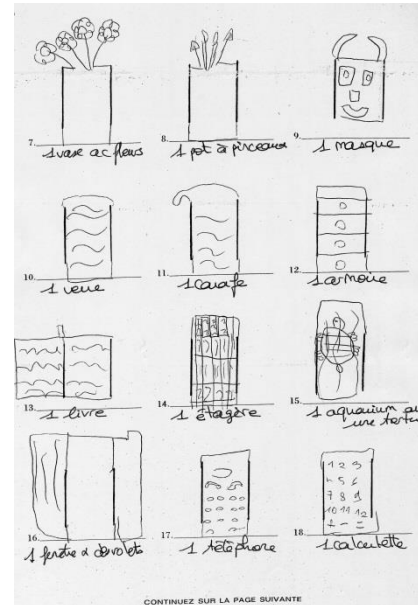 7. 1 vase ac fleurs
8. 1 pot à pinceaux
9. 1 masque
10. 1 verre
11. 1 carafe
12. 1 armoire
13. 1 livre
14. 1 étagère
15. 1 aquarium
une tortue
16. 1 fenêtre & des volets
17. 1 téléphone
1 2 3
4 5 6
7 8 9
10 11 12
+ - =
18. 1 calculette
CONTINUEZ SUR LA PAGE SUIVANTE